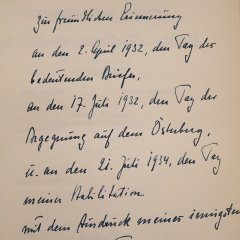 Zur freundlichen Erinnerung
an den 2. April 1932, den Tag des
bedeutenden Briefes,
an den 17. Juli 1932, den Tag der
Begegnung auf dem Österberg,
u. an den 21. Juli 1934, den Tag
meiner Habilitation
mit dem Ausdruck meiner innigsten